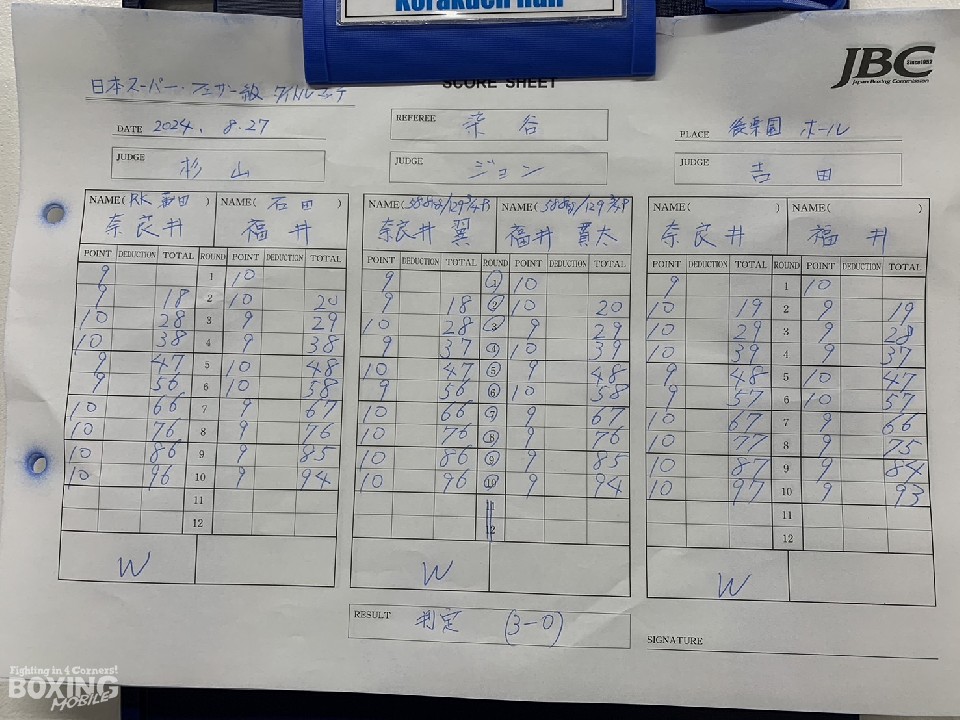 Korakuen Hall
SCORE SHEET
JBC
Since 1952
Japan Boxing Commission
日本スーパー・フェザー級 タイトルマッチ
DATE 2024. 8.27
REFEREE 染谷
PLACE 後楽園 ホール
JUDGE 杉山
JUDGE ジョン
JUDGE 吉田
NAME( RK 蒲田 ) NAME( 石田 ) NAME( 58.8kg/129 3/4P NAME( 58.8kg/129 3/4P NAME( ) NAME( )
奈良井 福井 奈良井 翼 福井 貫大 奈良井 福井
POINT DEDUCTION TOTAL ROUND POINT DEDUCTION TOTAL POINT DEDUCTION TOTAL ROUND POINT DEDUCTION TOTAL POINT DEDUCTION TOTAL ROUND POINT DEDUCTION TOTAL
9 1 10 9 1 10 9 1 10
9 18 2 10 20 9 18 2 10 20 10 19 2 9 19
10 28 3 9 29 10 28 3 9 29 10 29 3 9 28
10 38 4 9 38 9 37 4 10 39 10 39 4 9 37
9 47 5 10 48 10 47 5 9 48 9 48 5 10 47
9 56 6 10 58 9 56 6 10 58 9 57 6 10 57
10 66 7 9 67 10 66 7 9 67 10 67 7 9 66
10 76 8 9 76 10 76 8 9 76 10 77 8 9 75
10 86 9 9 85 10 86 9 9 85 10 87 9 9 84
10 96 10 9 94 10 96 10 9 94 10 97 10 9 93
11 11 11
12 12 12
W W W
RESULT 判定 (3-0)
SIGNATURE
Fighting in 4 Corners!
BOXING
MOBILE